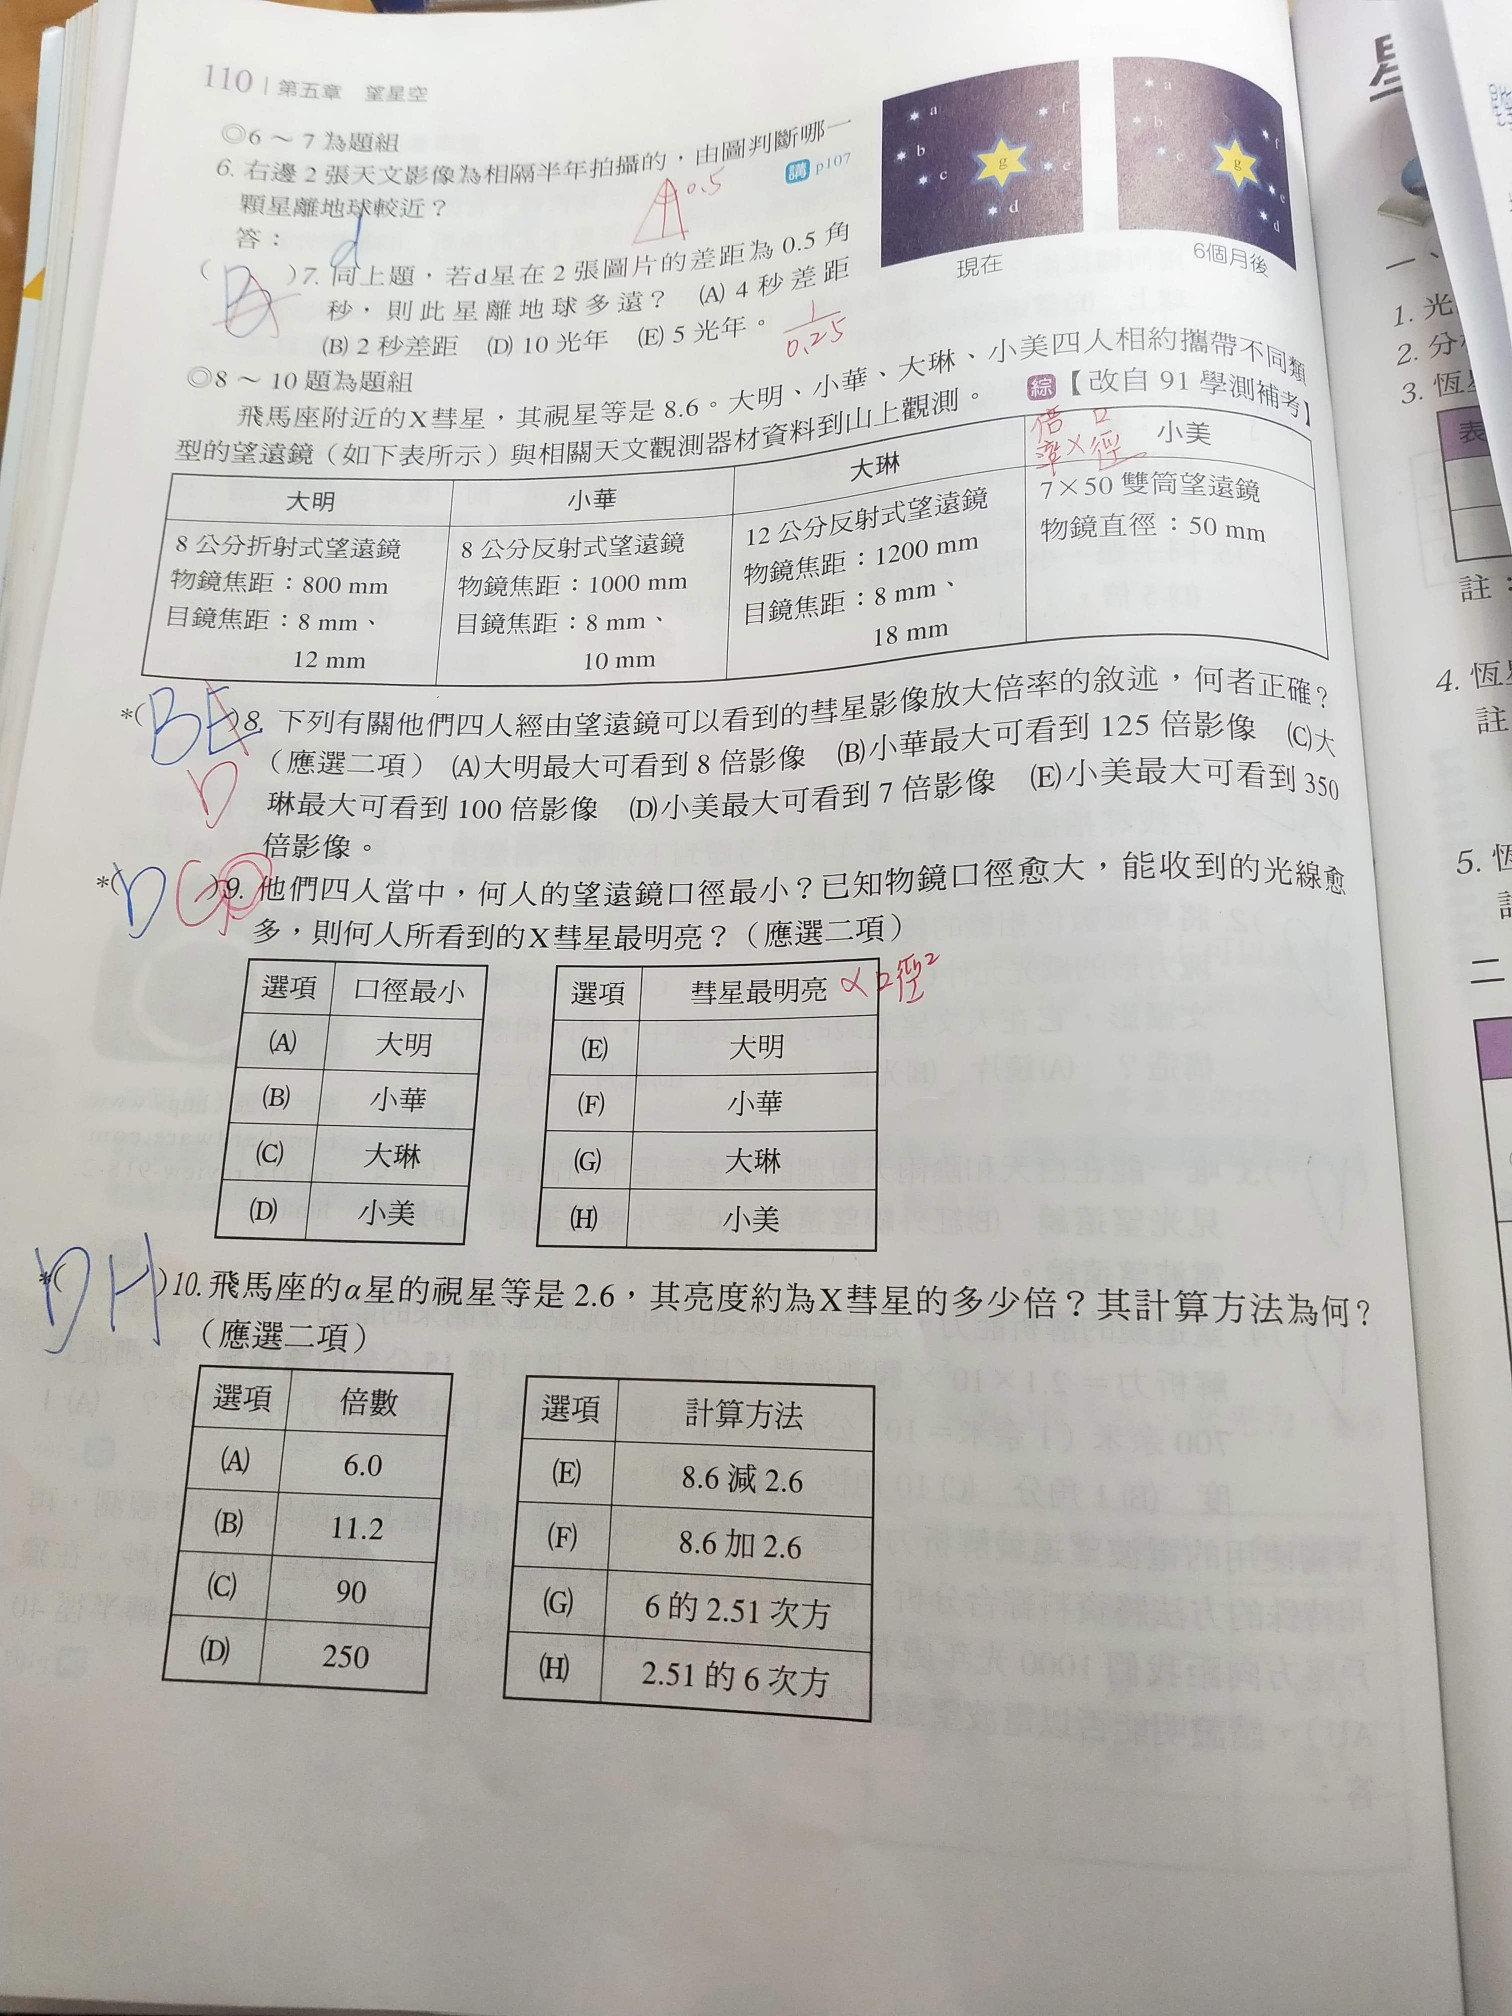 110 | 第五章 望星空
◎6～7為題組
6. 右邊2張天文影像為相隔半年拍攝的，由圖判斷哪一
顆星離地球較近？
講 p107
答：
d
0.5
a
b
c
d
e
f
g
現在
a
b
c
d
e
f
g
6個月後
( )7. 同上題，若d星在2張圖片的差距為0.5角
秒，則此星離地球多遠？ (A) 4秒差距
(B) 2秒差距 (D) 10光年 (E) 5光年。
1
0.25
◎8～10題為題組
飛馬座附近的X彗星，其視星等是8.6。大明、小華、大琳、小美四人相約攜帶不同類
型的望遠鏡（如下表所示）與相關天文觀測器材資料到山上觀測。 綜【改自91學測補考】
倍 口
率×徑
大明 小華 大琳 小美
8公分折射式望遠鏡
物鏡焦距：800 mm
目鏡焦距：8 mm、
12 mm
8公分反射式望遠鏡
物鏡焦距：1000 mm
目鏡焦距：8 mm、
10 mm
12公分反射式望遠鏡
物鏡焦距：1200 mm
目鏡焦距：8 mm、
18 mm
7×50雙筒望遠鏡
物鏡直徑：50 mm
*(BE)8. 下列有關他們四人經由望遠鏡可以看到的彗星影像放大倍率的敘述，何者正確？
D
（應選二項） (A)大明最大可看到8倍影像 (B)小華最大可看到125倍影像 (C)大
琳最大可看到100倍影像 (D)小美最大可看到7倍影像 (E)小美最大可看到350
倍影像。
*(D G)9. 他們四人當中，何人的望遠鏡口徑最小？已知物鏡口徑愈大，能收到的光線愈
多，則何人所看到的X彗星最明亮？（應選二項）
選項 口徑最小
(A) 大明
(B) 小華
(C) 大琳
(D) 小美
選項 彗星最明亮 ∝口徑²
(E) 大明
(F) 小華
(G) 大琳
(H) 小美
*(DH)10. 飛馬座的α星的視星等是2.6，其亮度約為X彗星的多少倍？其計算方法為何？
（應選二項）
選項 倍數
(A) 6.0
(B) 11.2
(C) 90
(D) 250
選項 計算方法
(E) 8.6減2.6
(F) 8.6加2.6
(G) 6的2.51次方
(H) 2.51的6次方
一、
1. 光
2. 分
3. 恆
表
註：
4. 恆
註
5. 恆
二